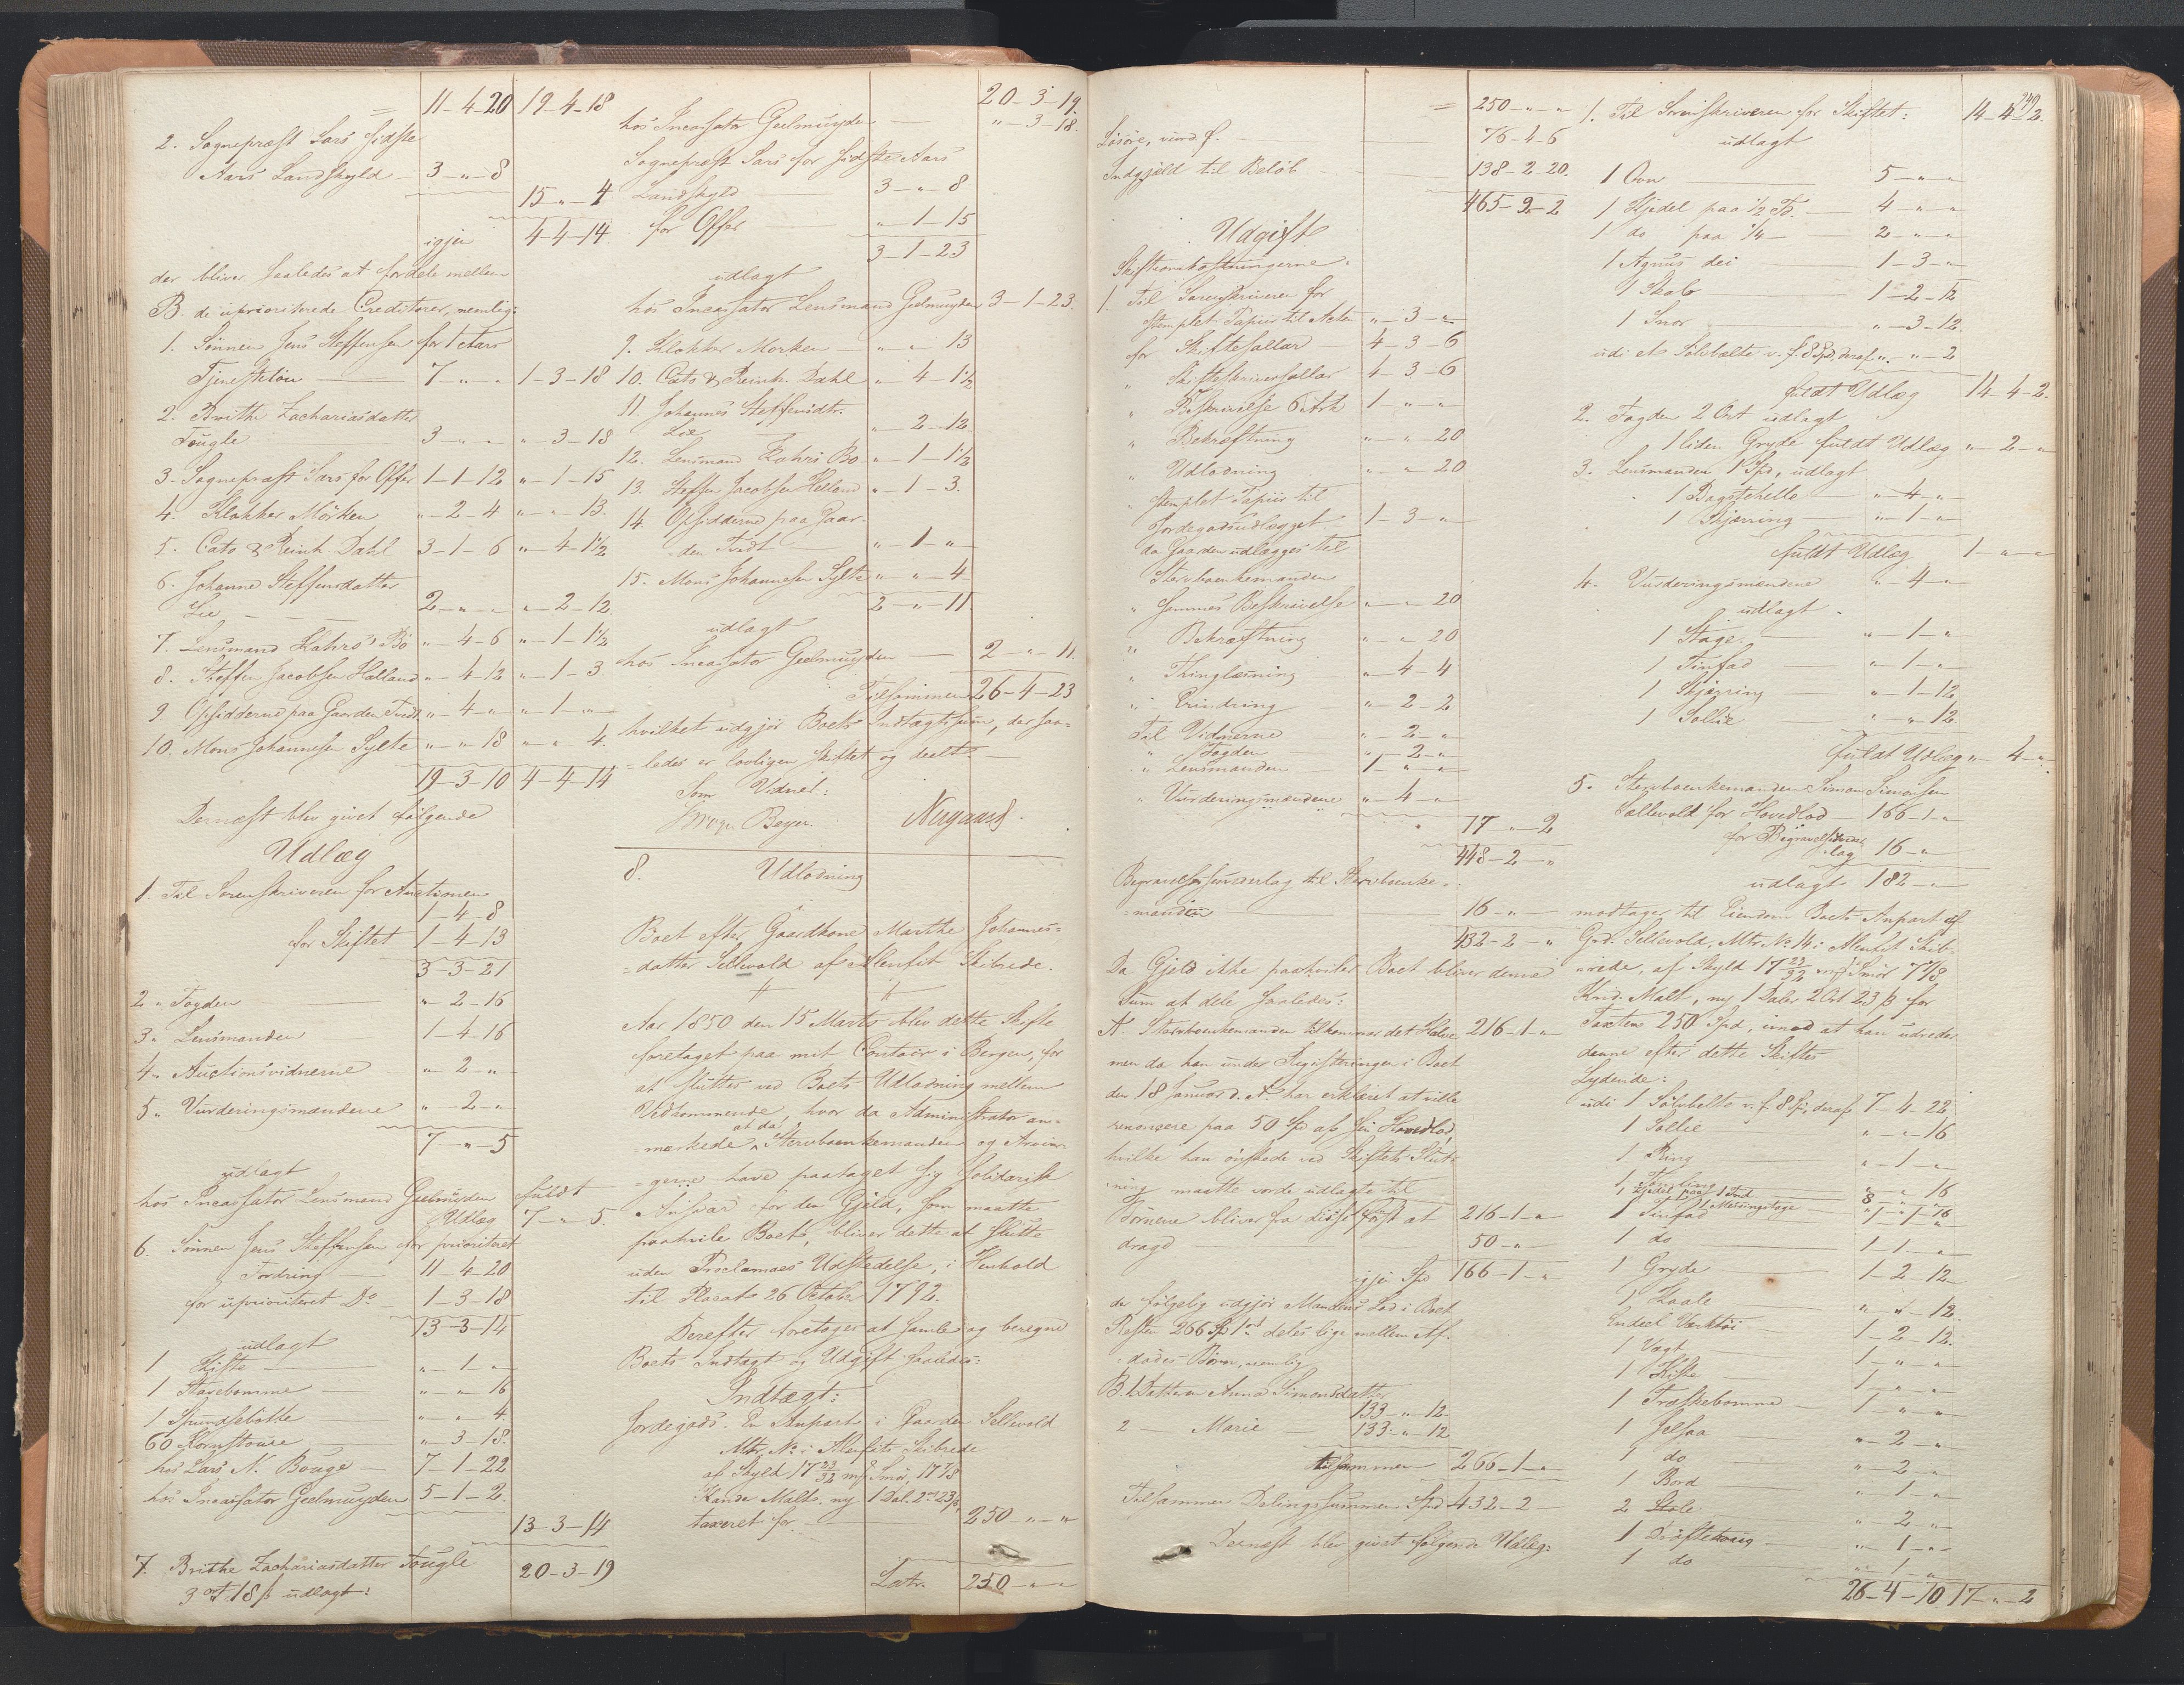 = 11-4-20 19-4-18
2. Sognepræst Sars sidste
Aars Landskyld - 3-"-8
15-"-4
igjen 4-4-14
der bliver saaledes at fordele mellem
B. de uprioriterede Creditorer, nemlig:
1. Sønnen Jens Steffensen for 1 Aars
Tjenesteløn - 7-"-" 1-3-18
2. Brithe Zachariasdatter
Tougle 3-"-" "-3-18
3. Sognepræst Sars for Offer 1-1-12 "-1-15
4. Klokker Mörken "-2-4 "-"-13.
5. Cato & Reinh. Dahl 3-1-6 "-4-1½
6. Johanne Steffensdatter
Lie 2-"-" "-2-12.
7. Lensmand Kahrs' Bo "-4-6 "-1-1½
8. Steffen Jacobsen Helland "-4-12 "-1-3.
9. Opsidderne paa Gaarden Tvedt "-4-" "-1-"
10. Mons Johannesen Sylte "-"-18 "-"-4.
19-3-10 4-4-14
Dernæst blev givet følgende
Udlæg
1. Til Sorenskriveren for Auctionen
1-4-8
for Skiftet 1-4-13
3-3-21
2. Fogden "-2-16
3. Lensmanden 1-4-16
4. Auctionsvidnerne "-2-"
5. Vurderingsmændene "-2-"
7-"-5
udlagt
hos Incassator Lensmand Geelmuyden fuldt
Udlæg 7-"-5.
6. Sønnen Jens Steffensen for prioriteret
Fordring - 11-4-20
for uprioriteret Do - 1-3-18
13-3-14
udlagt
1 Kiste "-1-"
1 Stavebomme "-"-16
1 Spundsebøtte "-"-4.
60 Kornstaure "-3-18.
hos Lars N. Bouge - 7-1-22
hos Incassator Geelmuyden 5-1-2.
13-3-14
7. Brithe Zachariasdatter Tougle 20-3-19
3 ort 18 ß udlagt:
20-3-19.
hos Incassator Geelmuyden - "-3-18.
Sognepræst Sars for sidste Aars
Landskyld 3-"-8
for Offer "-1-15
3-1-23
udlagt
hos Incassator Lensmand Geelmuyden 3-1-23.
9. Klokker Morken - "-"-13
10. Cato & Reinh. Dahl "-4-1½
11. Johannes Steffensdtr.
Lie "-2-12
12. Lensmand Kahrs Bo "-1-1½
13. Steffen Jacobsen Helland "-1-3.
14. Opsidderne paa Gaar-
den Tvedt "-1-"
15. Mons Johannesen Sylte "-"-4
2-"-11
udlagt
hos Incassator Geelmuyden - 2-"-11.
Tilsammen 26-4-23
hvilket udgjør Boets Indtægtssum, der saa-
=ledes er lovligen skiftet og deelt. -
Som Vidne:
Beyer. Nygaard.
8. Udlodning
i
Boet efter Gaardkone Marthe Johannes=
=datter Sellevold af Alenfit Skibrede.
Aar 1850 den 15 Marts blev dette Skifte
foretaget paa mit Contoir i Bergen, for
at sluttes ved Boets Udlodning mellem
Vedkommende, hvor da Administrator an=
=mærkede at da Stervboenkemanden og Arvin-
=gerne have paataget sig solidarisk
Ansvar for den Gjeld, som maatte
paahvile Boet, bliver dette at slutte
uden Proclamaes Udstedelse, i Henhold
til Placat 26 October 1792.
Derefter foretages at samle og beregne
Boets Indtægt og Udgift saaledes:
Indtægt:
Jordegods. En Anpart i Gaarden Sellevold
Mtr. No i Alenfits Skibrede
af Skyld 17 23/32 mk Smør, 17 7/8
Kande Malt. ny 1 Dal. 2 ort 23 ß
taxeret for - 250-"-"
Latr. 250-"-"
= 250-"-"
Løsøre, vurd. f. - 76-4-6
Indgjeld til Beløb - 138-2-20.
465-2-2
Udgift
Skifteomkostningerne.
1. Til Sorenskriveren for
stemplet Papiir til Acten "-3-"
for Skiftesallar - 4-3-6
" Skifteskriversallar 4-3-6
" Beskrivelse 6 Ark 1-"-"
" Bekræftning "-"-20
" Udlodning "-"-20
" stemplet Papiir til
Jordegodsudlægget - 1-3-"
da Gaarden udlægges til
Stervboenkemanden
" sammes Beskrivelse "-"-20
" Bekræftning "-"-20
" Thinglæsning "-4-4
" Erindring "-2-2
Til Vidnerne "-2-"
" Fogden "-2-"
" Lensmanden 1-"-"
" Vurderingsmændene "-4-"
17-"-2
448-2-"
Begravelsesunderlag til Stervboenke=
=manden 16-"-
432-2-"
Da Gjeld ikke paahviler Boet bliver denne
Sum at dele saaledes:
A. Stervboenkemanden tilkommer det Halve 216-1-"
men da han under Registeringen i Boet
den 18 Januar d. A. har erklæret at ville
renoncere paa 50 Sp af sin Hovedlod,
hvilke han ønskede ved Skiftets Slut=
=ning maatte vorde udlagte til
Børnene bliver fra disse først at 216-1-"
drage 50-"-
igjen Spd 166-1-"
der følgelig udgjør Mandens Lod i Boet
Resten 266 Sp 1 ort deles lige mellem Af-
=dødes Børn, nemlig
B. 1 Datteren Anna Simonsdatter
133-"-12.
2 - Marie - 133-"-12
tilsammen 266-1-"
Tilsammen Delingssummen Spd 432-2-
Dernæst blev givet følgende Udlæg:
240
1. Til Sorenskriveren for Skiftet: 14-4-2.
udlagt
1 Ovn 5-"-"
1 Kjedel paa 1/2 Td. - 4-"-"
1 do paa 1/4 - 2-"-"
1 Agnus dei 1-3-"
1 Skab 1-2-12
1 Snor "-3-12.
udi et Sølvbælte v. f. 8 Spd, deraf "-"-2
fuldt Udlæg 14-4-2.
2. Fogden 2 Ort udlagt
1 liden Gryde fuldt Udlæg "-2-"
3. Lensmanden 1 Spd, udlagt
1 Bagstehelle "-4-"
1 Skjærring "-1-"
fuldt Udlæg 1-"-"
4. Vurderingsmændene "-4-"
udlagt.
1 Stage. "-1-"
1 Tinfad "-1-"
1 Skjærring "-1-12.
1 Sollie "-"-12.
fuldt Udlæg "-4-"
5. Stervboenkemanden Simon Simonsen
Sællevold for Hovedlod - 166-1-"
for Begravelsesunder-
lag 16-"
udlagt 182-"
modtager til Eiendom Boets Anpart af
Grd. Sellevold, Mtr. No 14 i Alenfit Skib-
rede, af Skyld 17 23/32 mk Smør 7 7/8
Knd. Malt, ny 1 Daler 2 Ort 23 ß for
Taxten 250 Spd, imod at han udreder
denne efter dette Skiftes
Lydende:
udi 1 Sølvbelte v. f. 8 Sp, deraf 7-4-22
1 Sollie "-"-16
1 Ring "-1-"
1 "-"-16
1 Kjedel paa 1 Tnd 8-"-"
1 Tinfad 1 Messingstage "-1-16
1 do 1-1-"
1 Gryde 1-2-12
1 "-"-12.
Endeel Værktøi 1-2-12.
1 Vægt 1-"-"
1 Kiste 1-"-"
1 Træskebomme 1-"-"
1 "-2-"
1 do "-2-"
1 Bord "-1-"
2 Stole "-2-"
1 "-1-"
1 do "-1-"
26-4-10 17-"-2